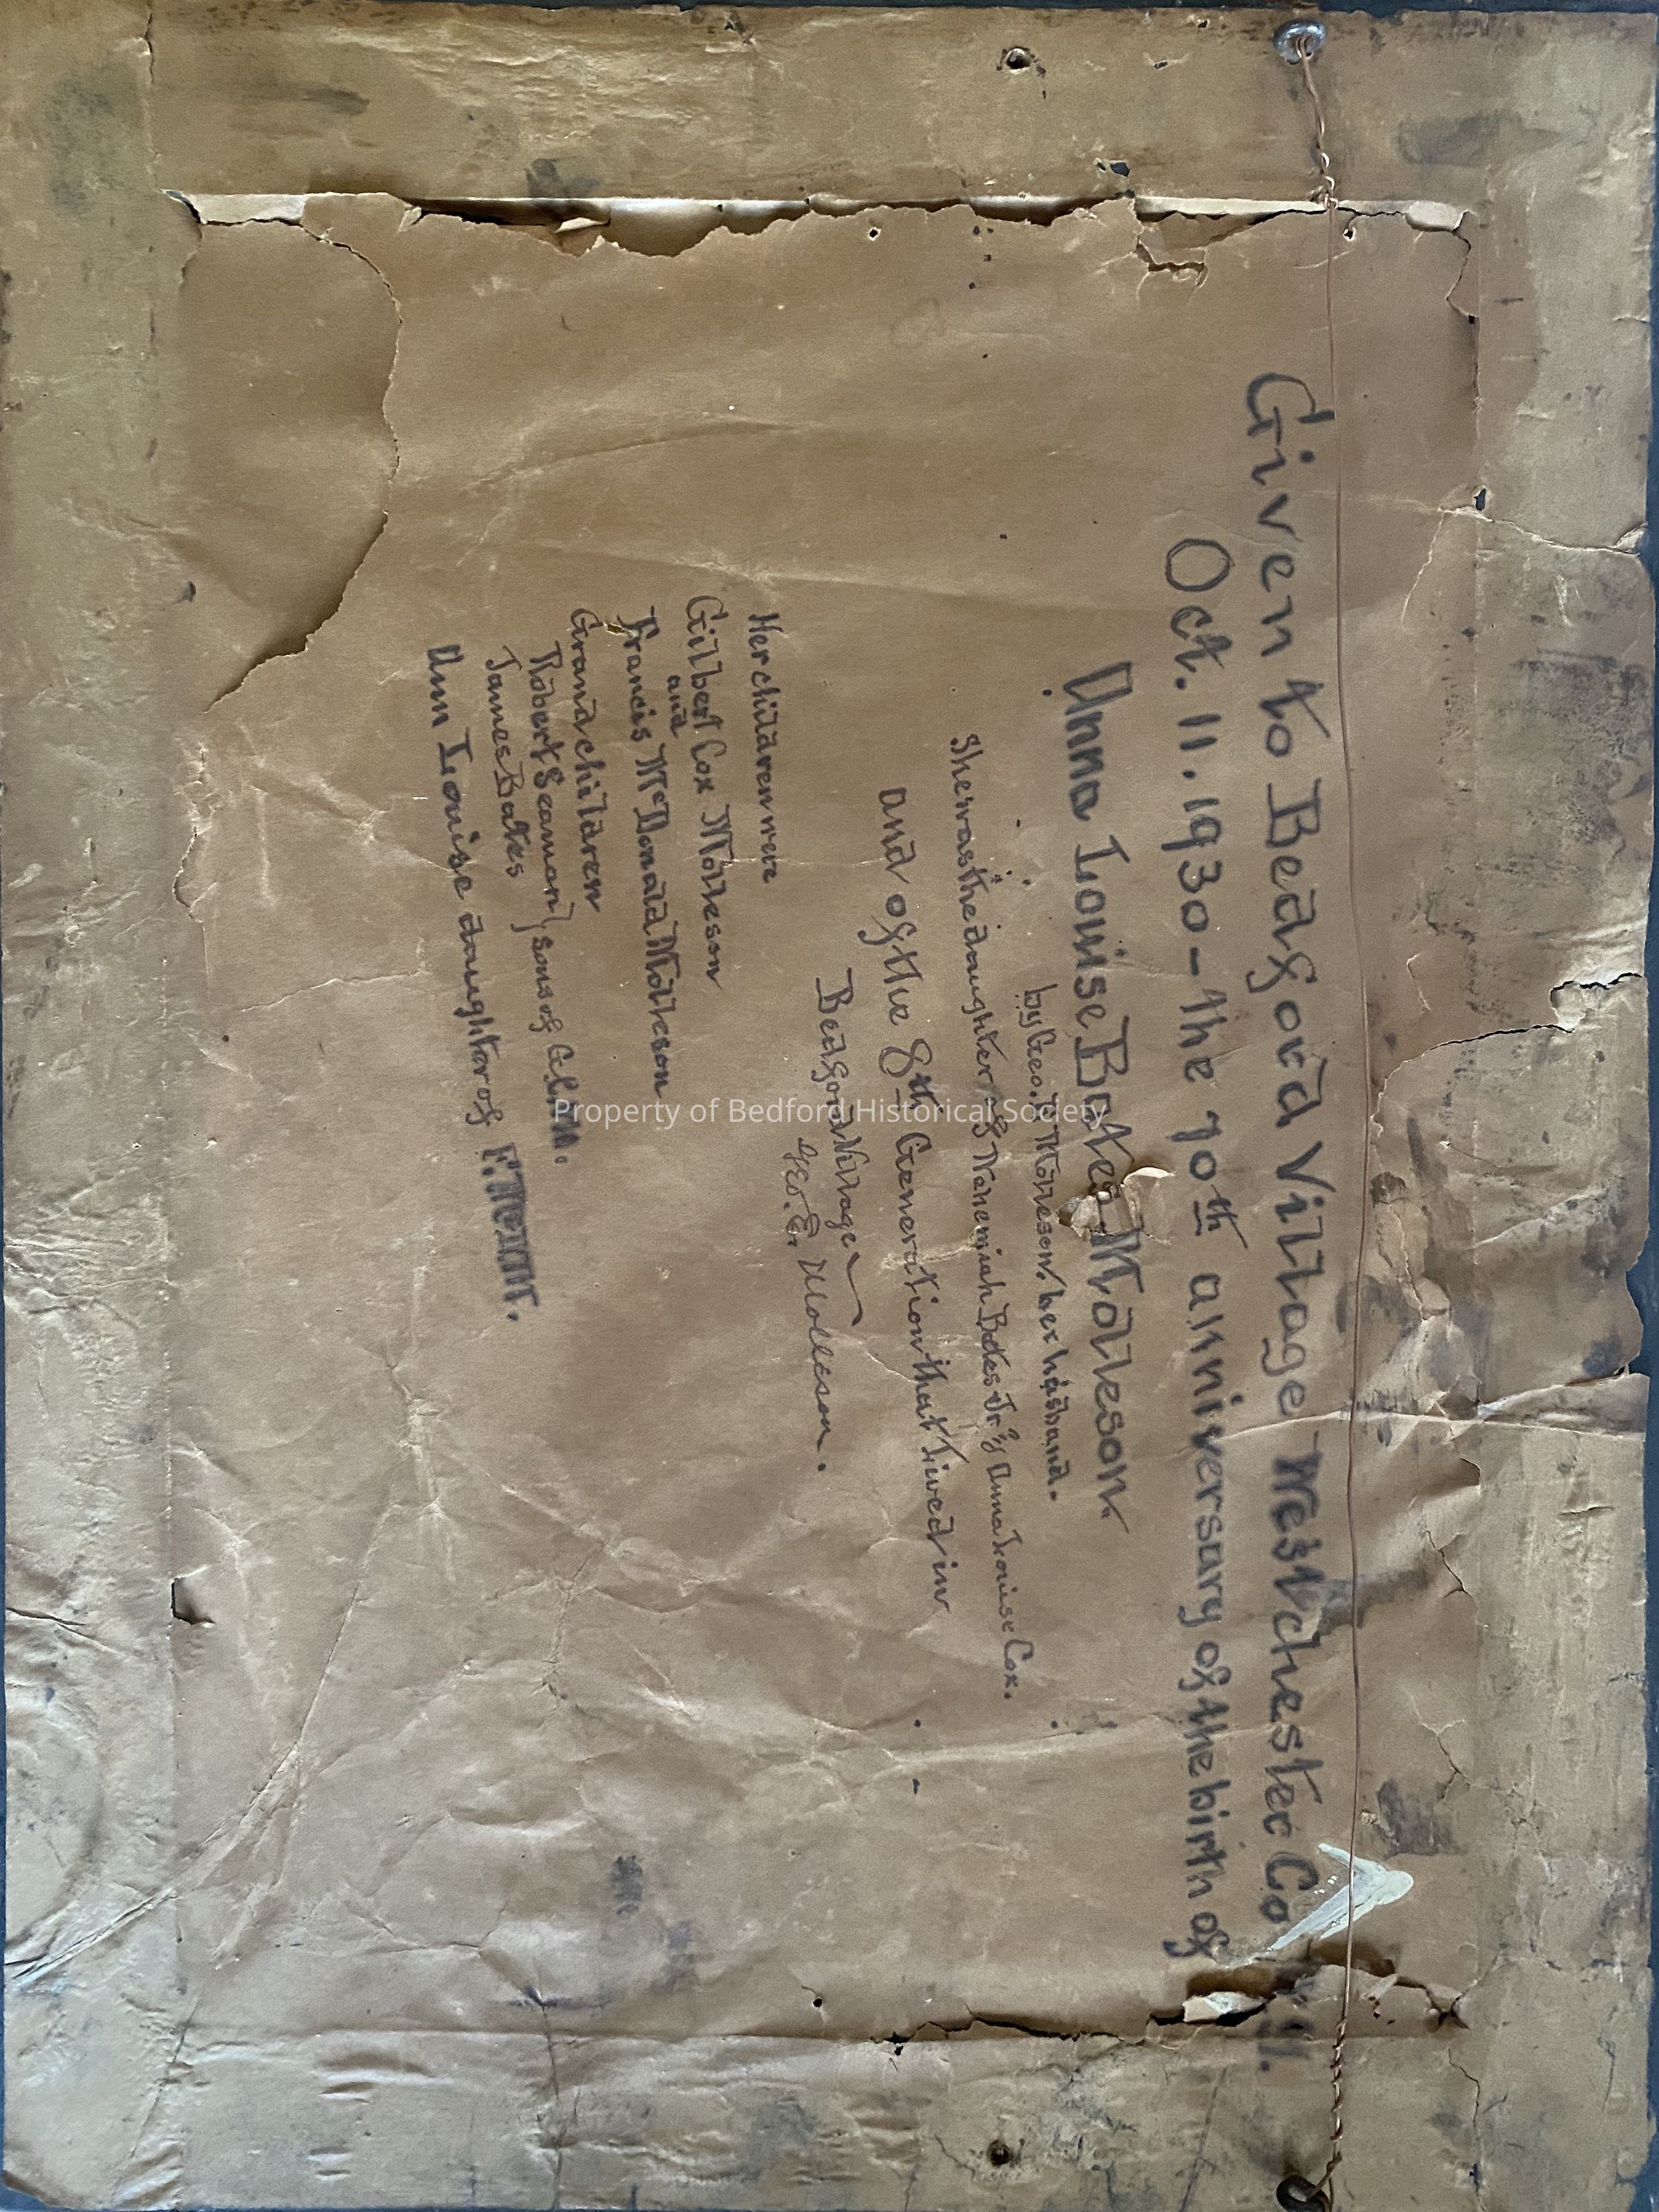 Given to Bedford Village Westchester Co N.Y.
Oct. 11. 1930 - the 70th anniversary of the birth of
Anna Louise Bates Molleson
by Geo. E. Molleson. her husband.
She was the daughter of Nehemiah Bates Jr & Anna Louise Cox.
and of the 8th Generation that lived in
Bedford Village
Geo. E. Molleson.
Her children were
Gilbert Cox Molleson
and
Francis McDonald Molleson
Grandchildren
Robert Seaman } sons of G.C.M.
James Bates
Ann Louise daughter of
Property of Bedford Historical Society